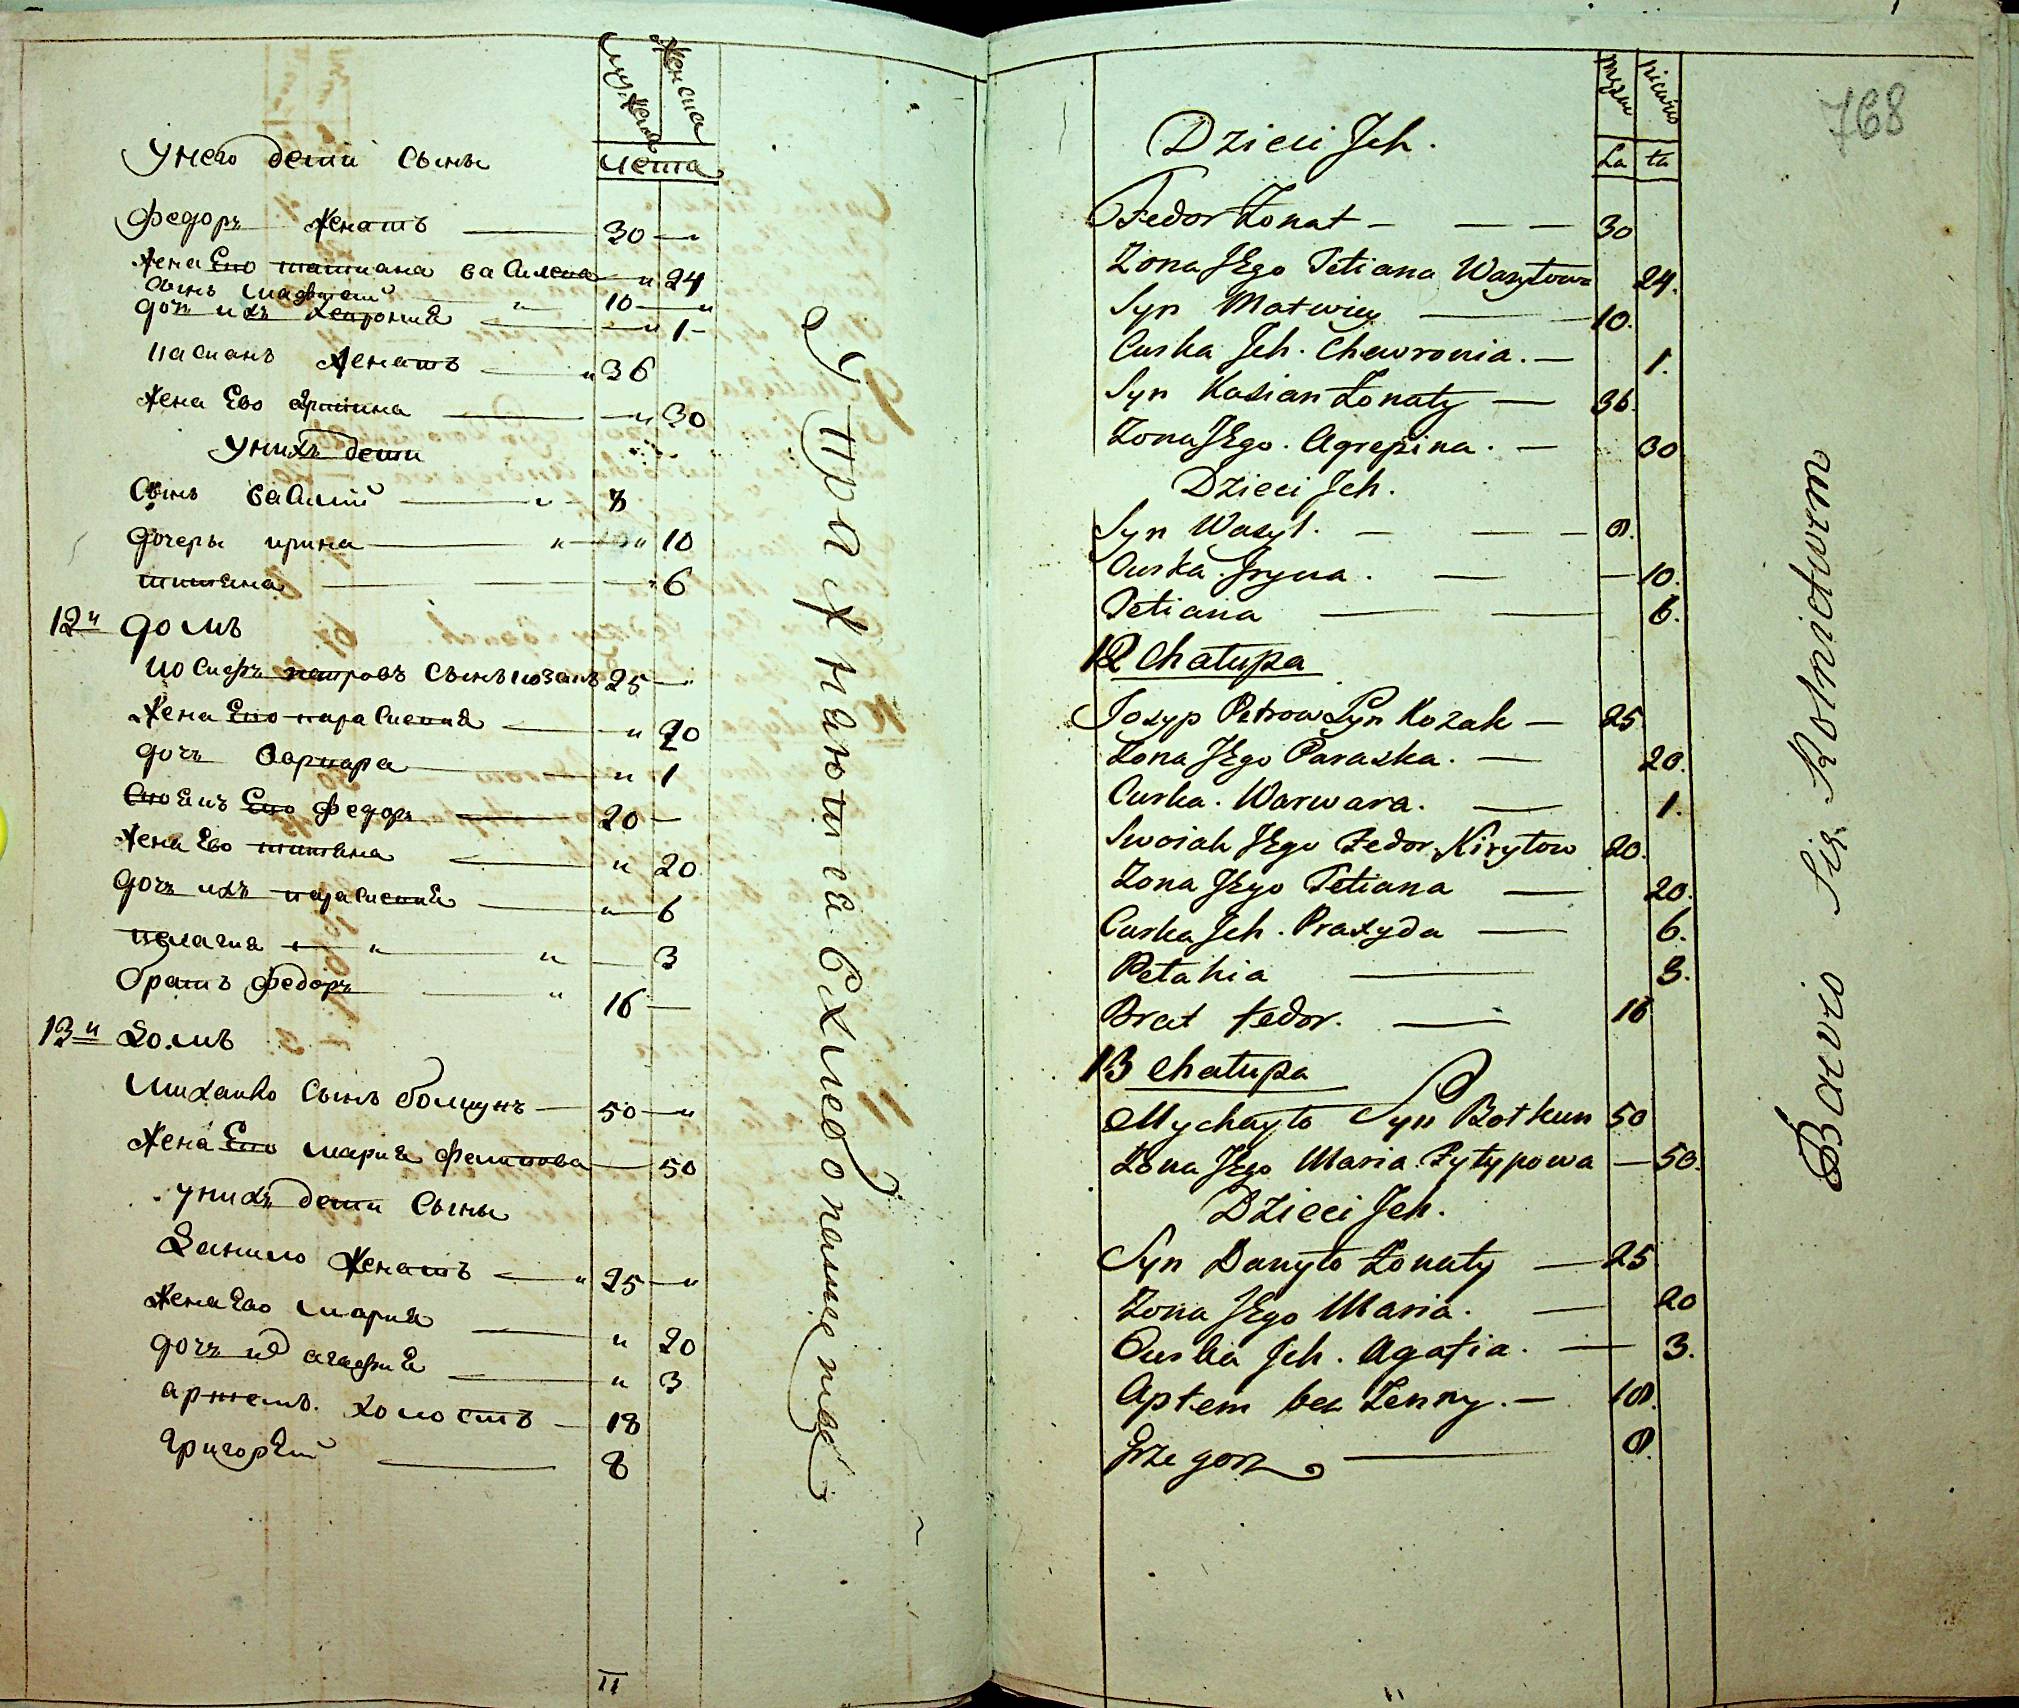 мужеска
женска
лета
У него дети сыны
Федоръ женатъ 30
жена Ево татиана василева 24
сынъ мадвией 10
дочь ихъ хеврония 1
касианъ женатъ 36
жена Ево агрипина 30
У нихъ дети
Сынъ василий 8
дочеры ирина 10
татияна 6
12й домъ
иосифъ петровъ сынъ козакъ 25
жена Ево параскевия 20
дочь варвара 1
своякъ Ево федоръ 20
жена Ево татияна 20
дочь ихъ параскевия 6
пелагия 3
братъ федоръ 16
13й домъ
михайло сынъ болкунъ 50
жена Ево мария филипова 50
у нихъ дети сыны
данило женатъ 25
жена Ево мария 20
дочь их агафия 3
артемъ холостъ 18
григорей 8
Упражняютса в хлебопашестве
II
768
męzka
żeńska
La ta
Dzieci Jch.
Fedor Żonat 30
Żona JEgo Tetiana Wasylowa 24.
Syn Matwiey 10.
Curka Jch. Chewronia. 1.
Syn Kasian Żonaty 36.
Żona JEgo. Agrepina. 30
Dzieci Jch.
Syn Wasyl. 8.
Curka Jryna. 10.
Tetiana 6.
12 Chałupa
Josyp Petrow Syn Kozak 25
Żona JEgo Paraska. 20.
Curka. Warwara. 1.
Swoiak JEgo Fedor Kiryłow 20.
Żona JEgo Tetiana 20.
Curka Jch. Praxyda 6.
Pełahia 3.
Brat fedor. 16
13 Chałupa
Mychayło Syn Bołkun 50
Żona JEgo Maria Fyłypowa 50.
Dzieci Jch.
Syn Danyło Żonaty 25
Żona JEgo Maria. 20
Curka Jch. Agafia. 3.
Aptem bez Żenny. 18.
Grzegorz 8.
Bawio Się Rolnictwem